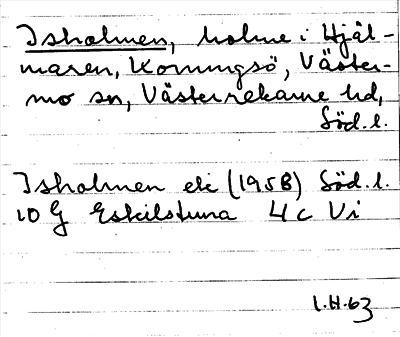 Isholmen, holme i Hjäl-
maren, Korningsö, Väster-
mo sn, Västerrekarne hd,
Söd. l.
Isholmen ek (1958) Söd. l.
10 G Eskilstuna 4 c Vi
I.H.63